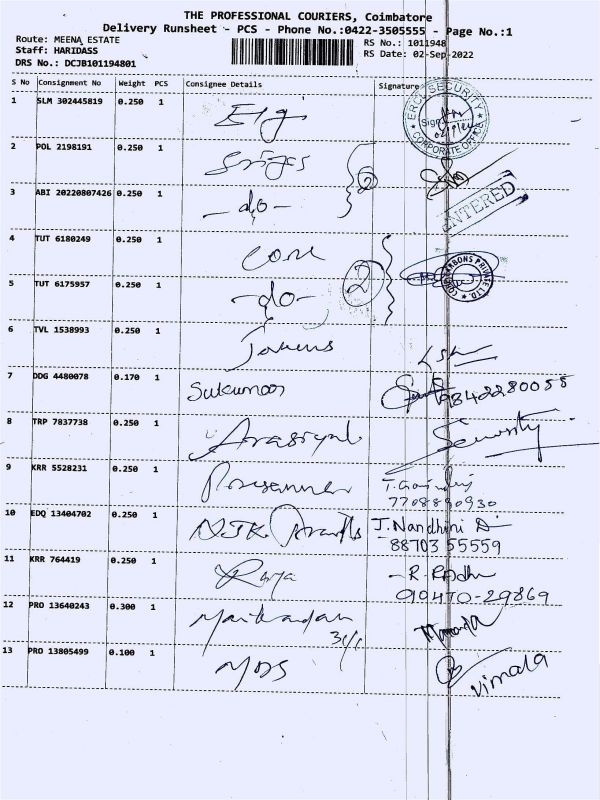 THE PROFESSIONAL COURIERS, Coimbatore
Delivery Runsheet - PCS - Phone No.:0422-3505555 - Page No.:1
Route: MEENA ESTATE
RS No.: 1011948
Staff: HARIDASS
RS Date: 02-Sep-2022
DRS No.: DCJB101194801
S No Consignment No Weight PCS Consignee Details Signature
1 SLM 302445819 0.250 1
ERCU SECURITY CORPORATE OFFICE
2 POL 2198191 0.250 1
3 ABI 20220807426 0.250 1 -do- 2
ENTERED
4 TUT 6180249 0.250 1
5 TUT 6175957 0.250 1 -do- 2
CARBONS PRIVATE LTD.
6 TVL 1538993 0.250 1
7 DDG 4480078 0.170 1 Sukumar 9842280055
8 TRP 7837738 0.250 1 Security
9 KRR 5528231 0.250 1
7708890930
10 EDQ 13404702 0.250 1 J. Nandhini D
88703 55559
11 KRR 764419 0.250 1 - R. Radha
12 PRO 13640243 0.300 1
13 PRO 13805499 0.100 1 MDS Vimala